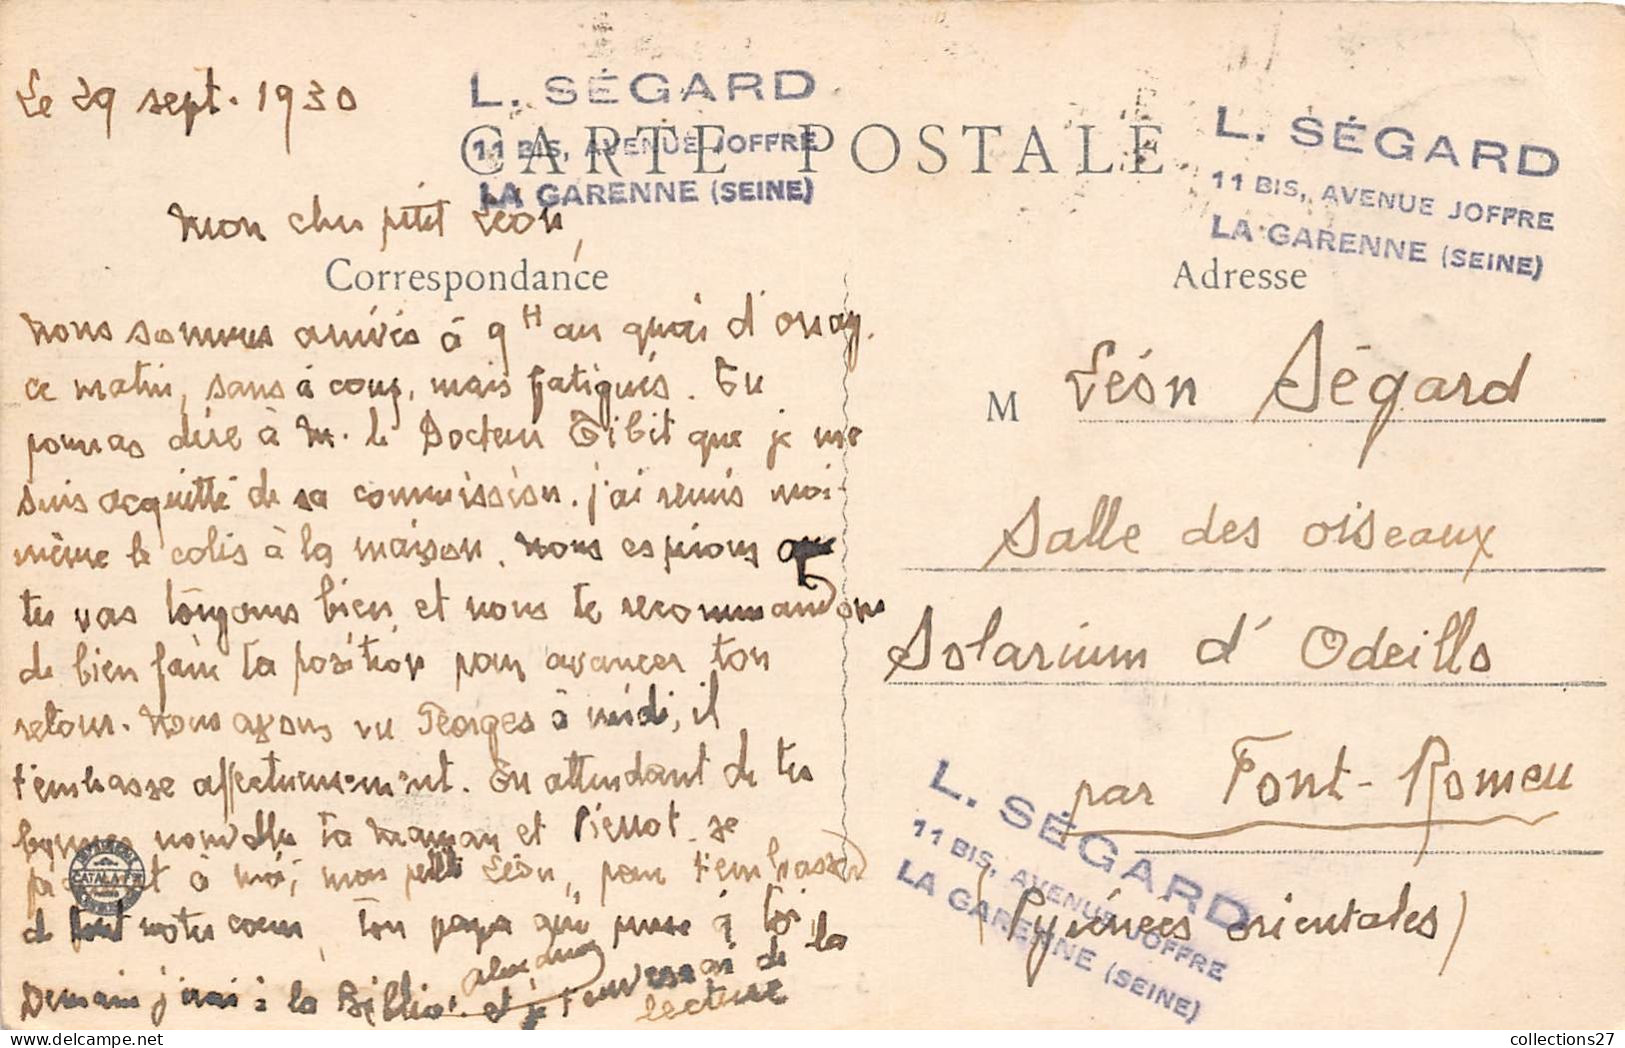 Le 29 sept. 1930
L. SÉGARD
11 BIS, AVENUE JOFFRE
LA GARENNE (SEINE)
CARTE POSTALE
L. SÉGARD
11 BIS, AVENUE JOFFRE
LA GARENNE (SEINE)
Mon cher petit Léon,
Correspondance
Adresse
Nous sommes arrivés à 9H au quai d'orsay.
ce matin, sans à coup, mais fatigués. Tu
pourras dire à M. le Docteur Gibit que je me
suis acquitté de sa commission. j'ai remis moi-
même le colis à la maison. Nous espérons que
tu vas toujours bien et nous te recommandons
de bien faire ta position pour avancer ton
retour. Nous avons vu Georges à midi, il
t'embrasse affectueusement. En attendant de tes
bonnes nouvelles ta maman et Pierrot se
à moi, mon petit Léon, pour t'embrasser
de tout notre coeur, ton papa qui pense à toi,
Demain j'irai à la Biblio. et je t'enverrai de la
lecture
M Léon Ségard
Salle des oiseaux
Solarium d'Odeillo
par Font-Romeu
(Pyrénées orientales)
L. SÉGARD
11 BIS, AVENUE JOFFRE
LA GARENNE (SEINE)
CATALA
collections27